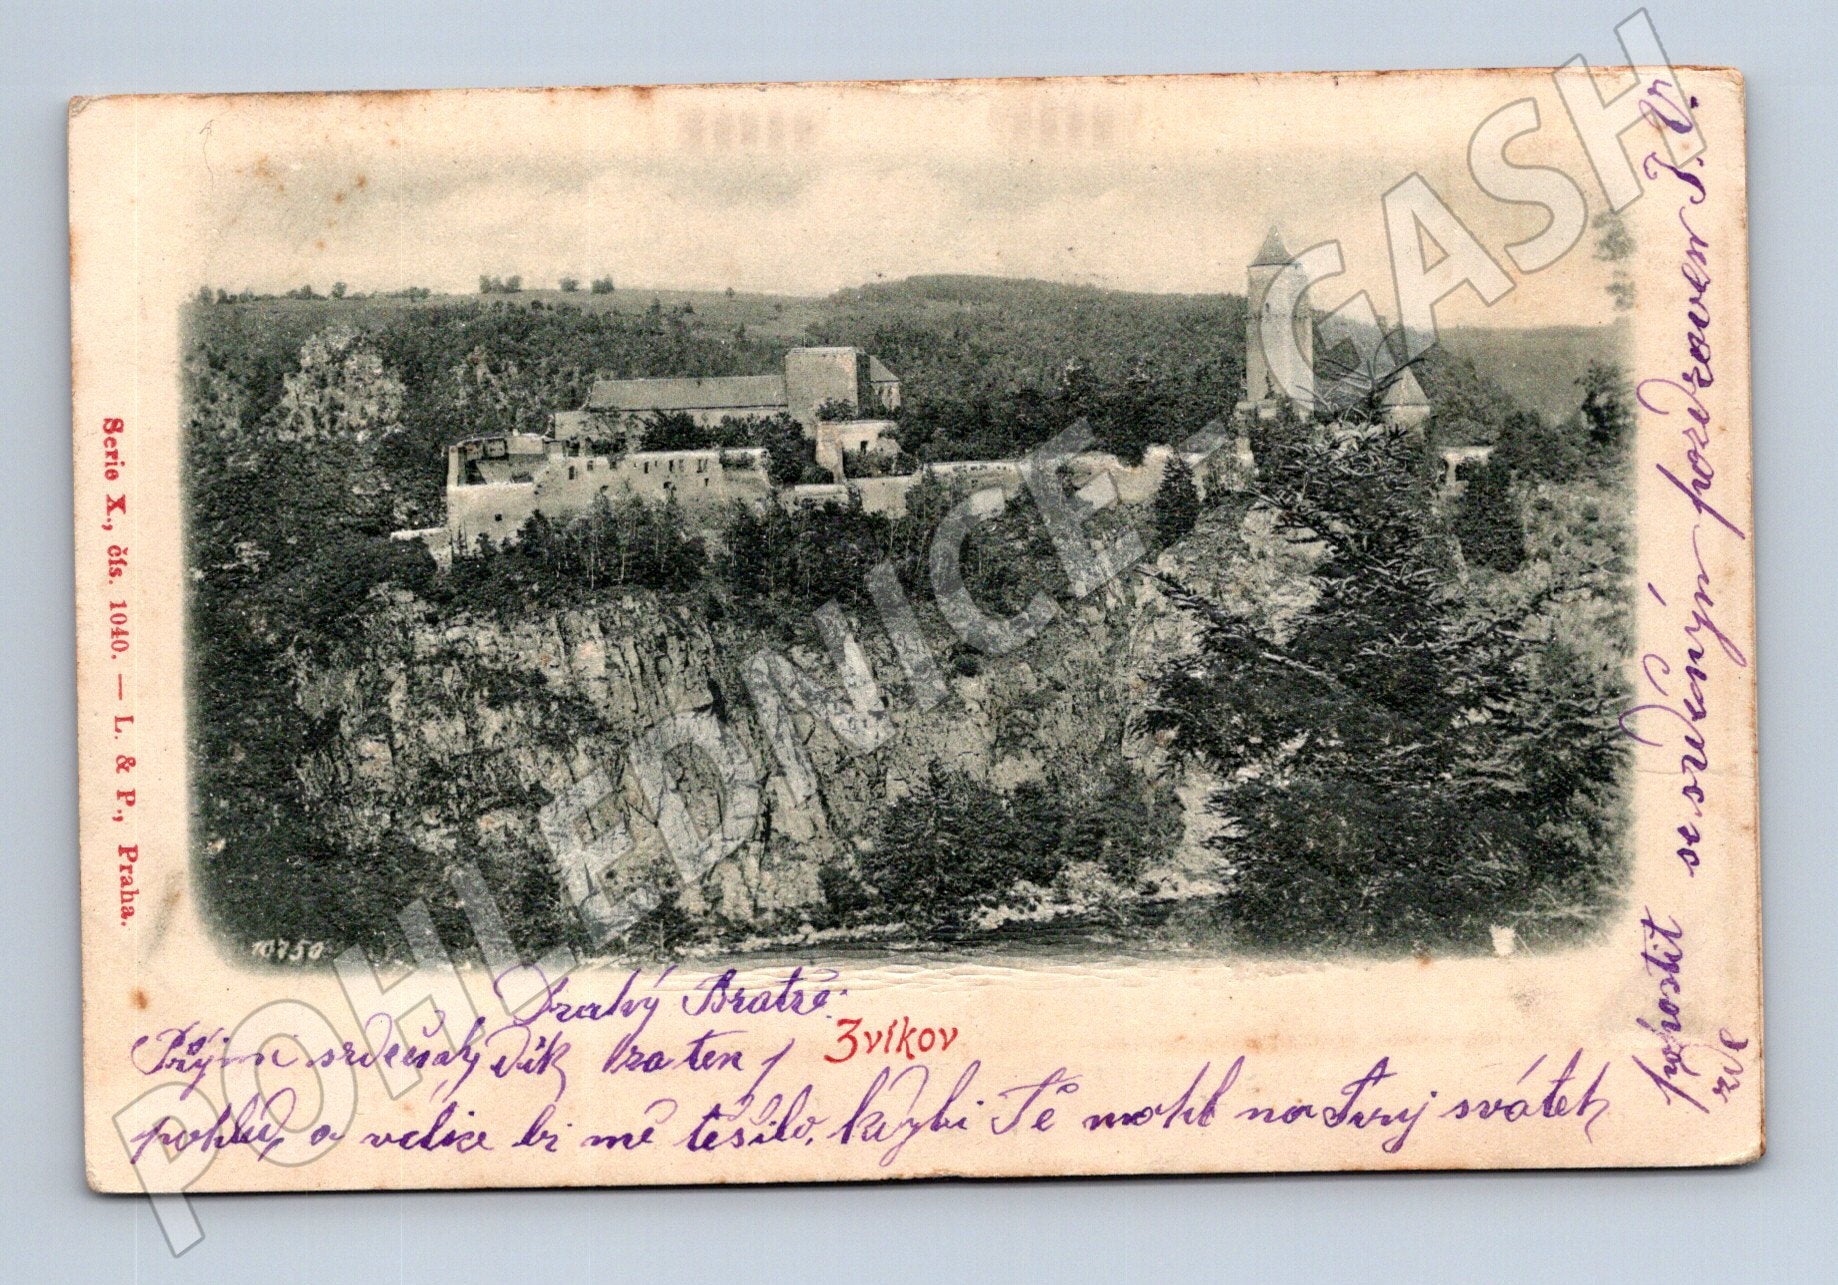 Serie X., čís. 1040. — L. & P., Praha.
10750
Drahý Bratře!
Zvíkov
Přijmi srdečný dík za ten
pohled, a velice bi mě těšilo, kdybi Tě mohl na Tvuj svátek
pohostit
zde
se srdečným pozdravem J. V.
POHLEDNICE_CASH